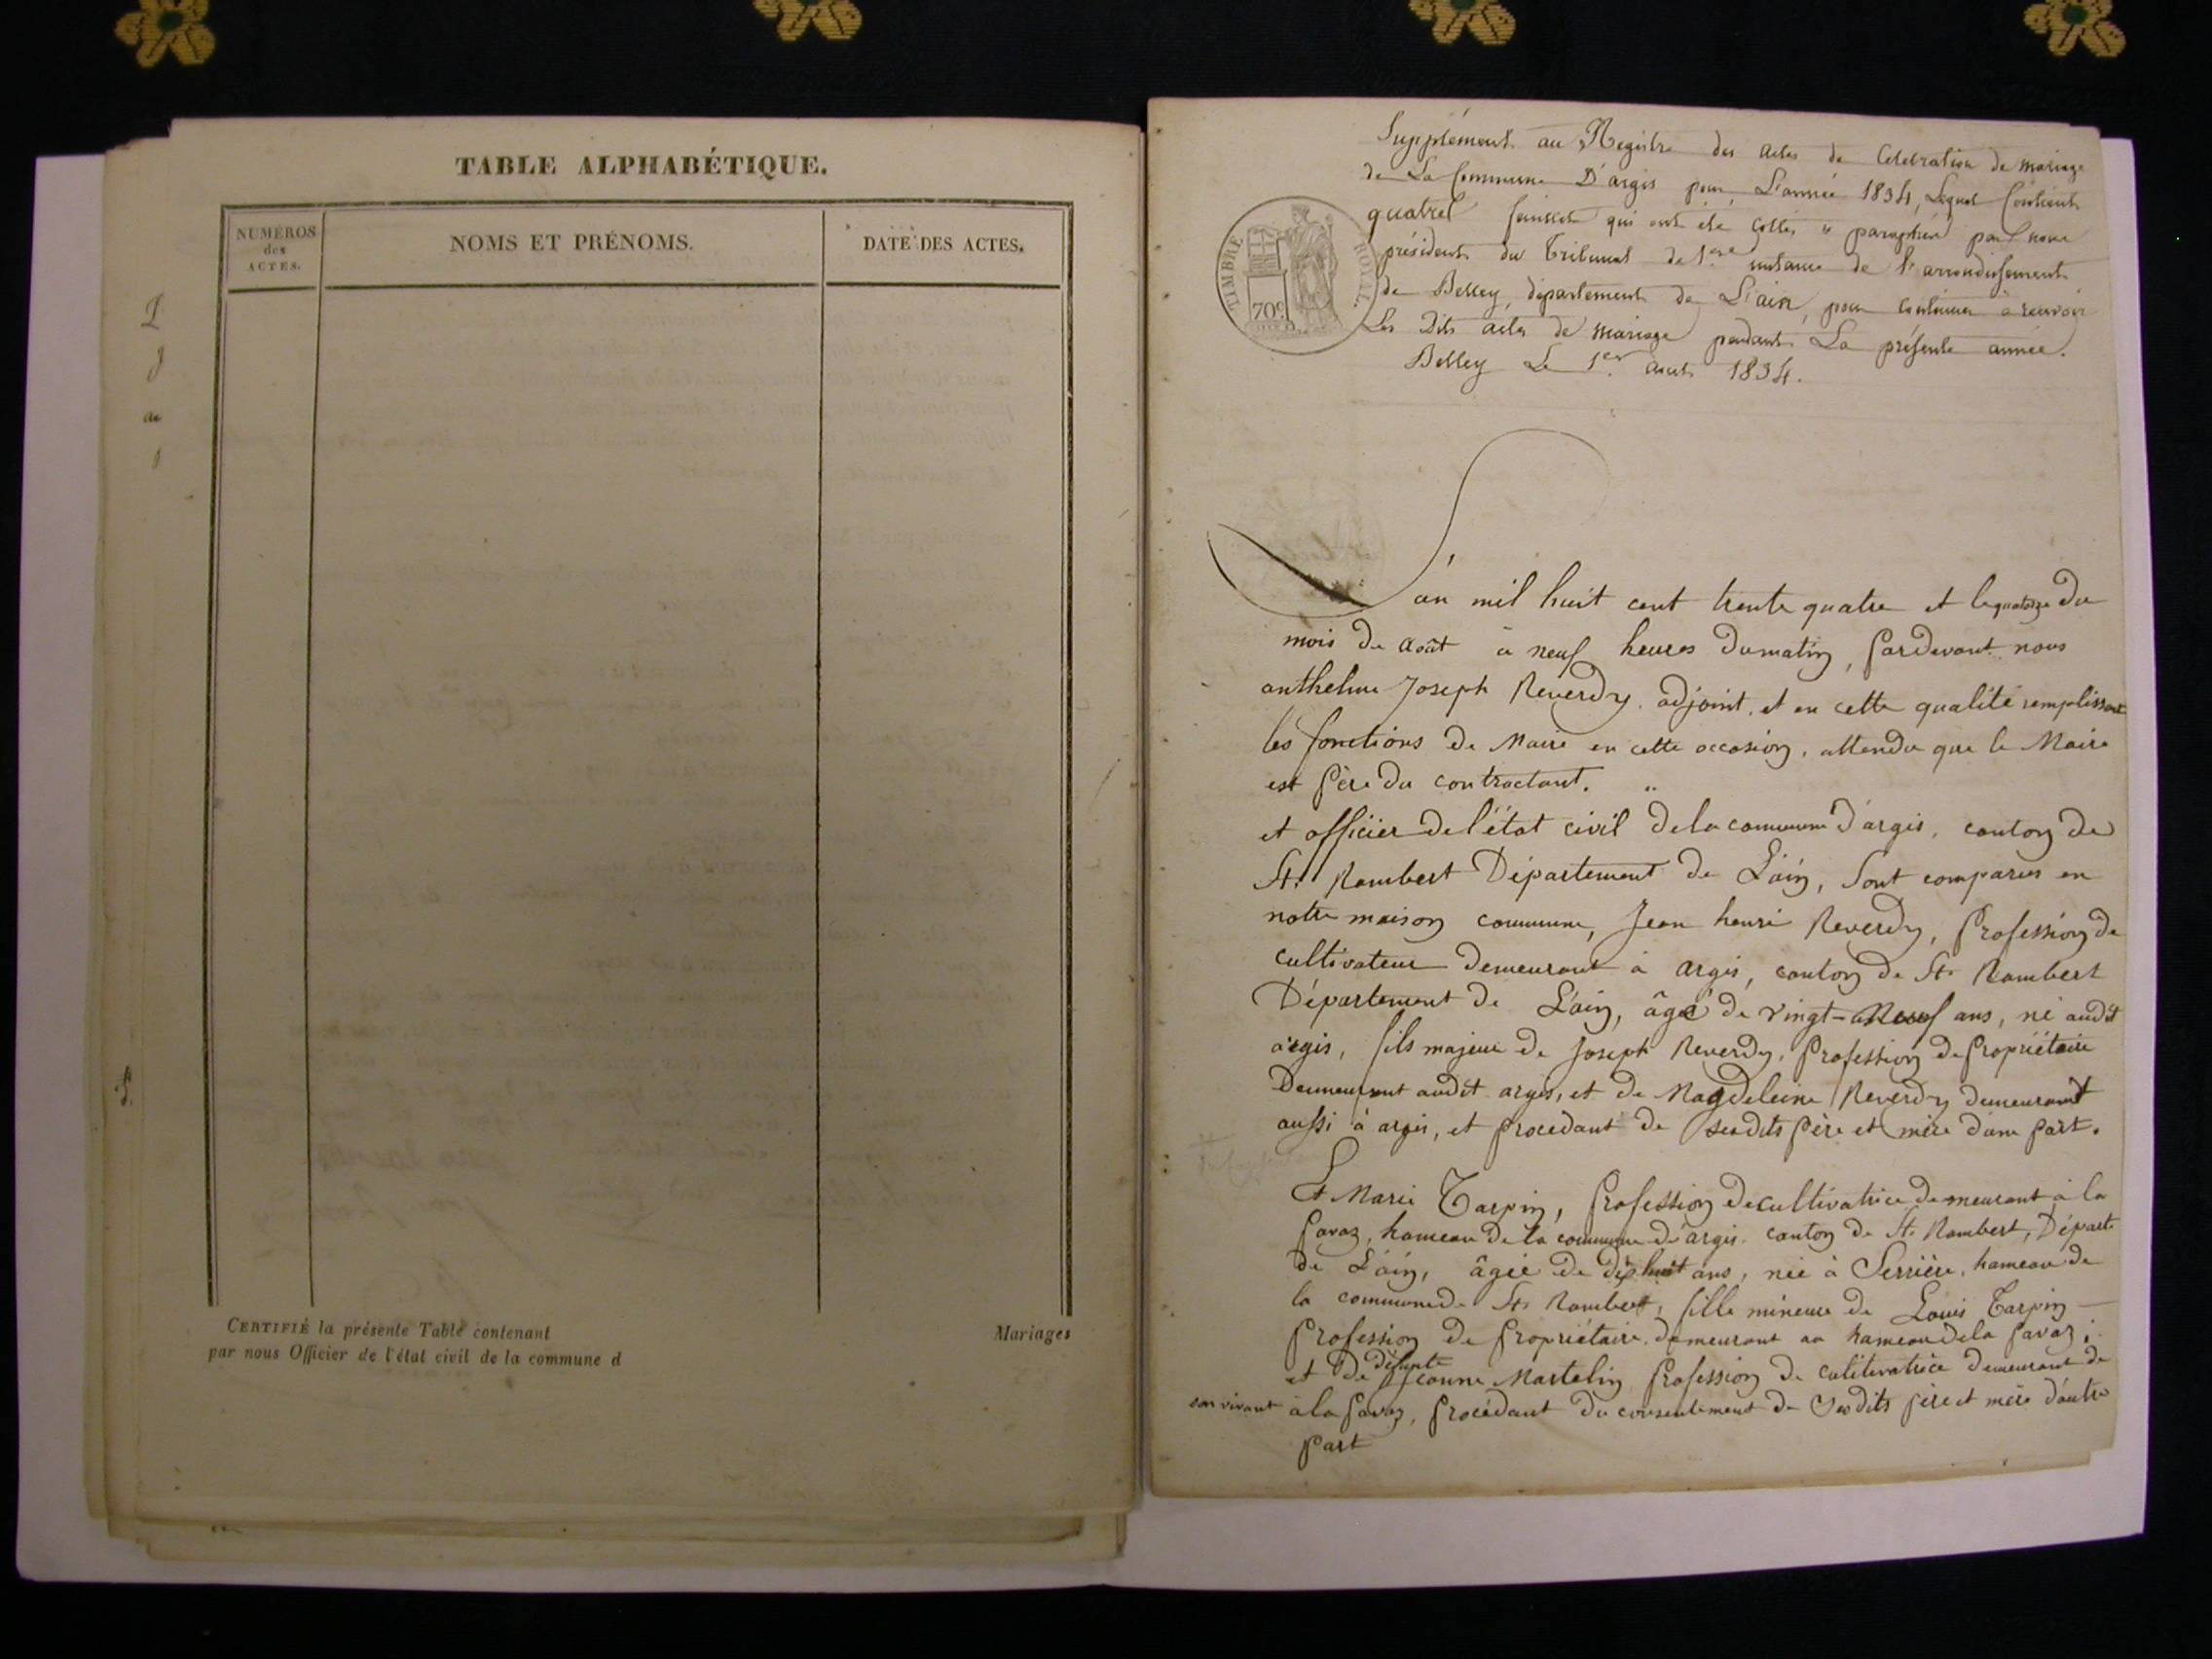 TABLE ALPHABÉTIQUE.
NUMÉROS
des
ACTES.
NOMS ET PRÉNOMS.
DATE DES ACTES.
CERTIFIÉ la présente Table contenant
Mariages
par nous Officier de l'état civil de la commune d
Supplément au Registre des actes de Celebration de mariage
de La Commune D'argis pour L'année 1834, Lequel Contient
quatre feuillets qui ont été Cottés & paraphés par nous
président du Tribunal de 1ere instance de l'arrondissement
de Belley, département de L'ain, pour Continuer à recevoir
Les Dits actes de mariage pendant La présente année.
Belley Le 1er août 1834.
TIMBRE ROYAL
70c
L'an mil huit cent trente quatre et le quatorze du
mois de Août à neuf heures du matin, pardevant nous
anthelme Joseph Reverdy adjoint, et en cette qualité remplissant
les fonctions de Maire en cette occasion, attendu que le Maire
est père du contractant.
et officier de l'état civil de la commune d'argis, canton de
St. Rambert Département de L'ain, sont comparus en
notre maison commune, Jean henri Reverdy, Profession de
cultivateur demeurant à argis, canton de St. Rambert
Département de L'ain, âgé de vingt-neuf ans, né audit
argis, fils majeur de Joseph Reverdy, Profession de Propriétaire
Demeurant audit argis, et de Magdeleine Reverdy demeurant
aussi à argis, et procedant de sesdits père et mère d'une part.
Et Marie Tarpin, Profession de cultivatrice demeurant à la
Pavaz, hameau de la commune d'argis canton de St. Rambert, Départ
de L'ain, âgée de dix huit ans, née à Serrière, hameau de
la commune de St. Rambert, fille mineure de Louis Tarpin
Profession de Propriétaire demeurant au hameau de la Pavaz;
et de défunte Jeanne Martelin Profession de cultivatrice demeurant de
son vivant à la Pavaz, Procédant du consentement de sesdits père et mère d'autre
part